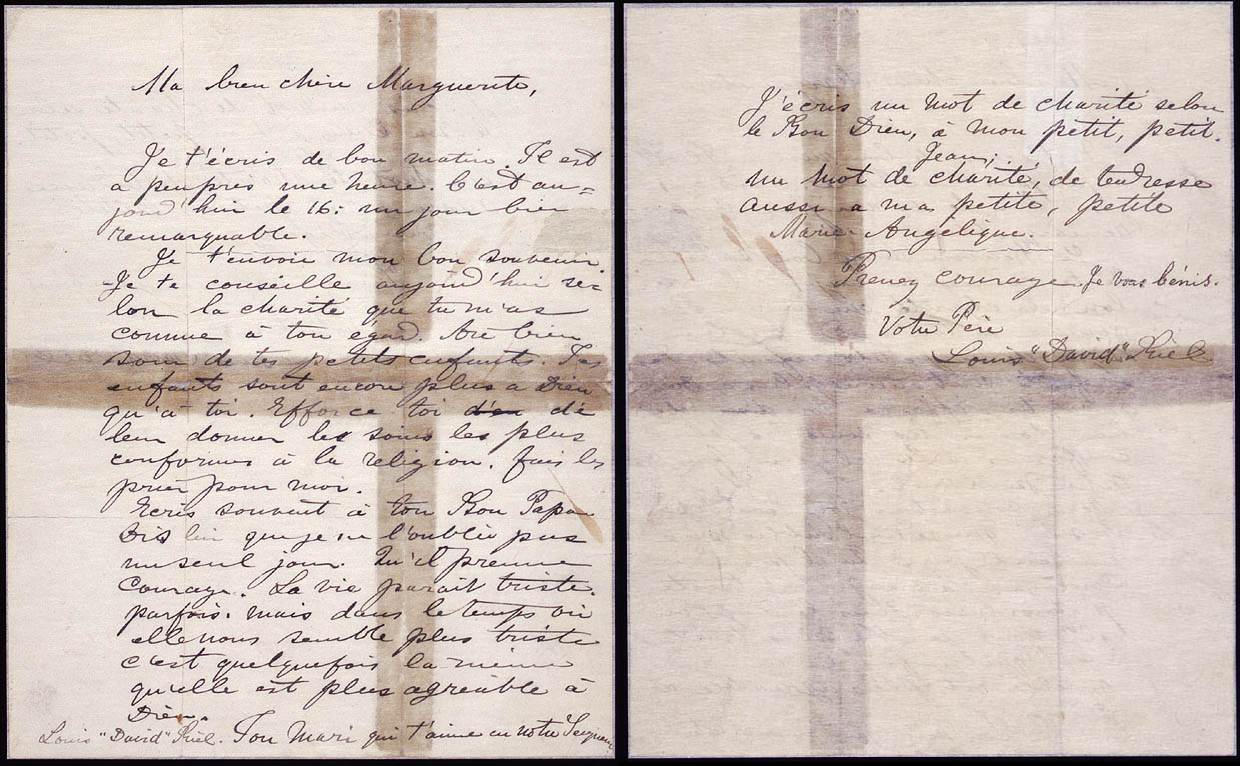 Ma bien chère Marguerite,
Je t'écris de bon matin. Il est
a peu près une heure. C'est au=
jourd'hui le 16: un jour bien
remarquable.
Je t'envoie mon bon souvenir.
Je te conseille aujourd'hui se=
lon la charité que tu m'as
connue à ton égard. Aie bien
soin de tes petits enfants. Tes
enfants sont encore plus a Dieu
qu'à toi. Efforce toi d'en de
leur donner les soins les plus
conformes à la religion. fais les
prier pour moi.
Ecris souvent à ton Bon Papa
Dis lui que je ne l'oublie pas
un seul jour. Qu'il prenne
courage. La vie parait triste
parfois. mais dans le temps où
elle nous semble plus triste
c'est quelquefois la même
qu'elle est plus agréable à
Dieu.
Louis "David" Riel. Ton Mari qui t'aime en Notre Seigneur
J'écris un mot de charité selon
le Bon Dieu, à mon petit, petit.
Jean;
un mot de charité, de tendresse
aussi a ma petite, petite
Marie Angélique.
Prenez courage Je vous bénis.
Votre Père
Louis "David" Riel